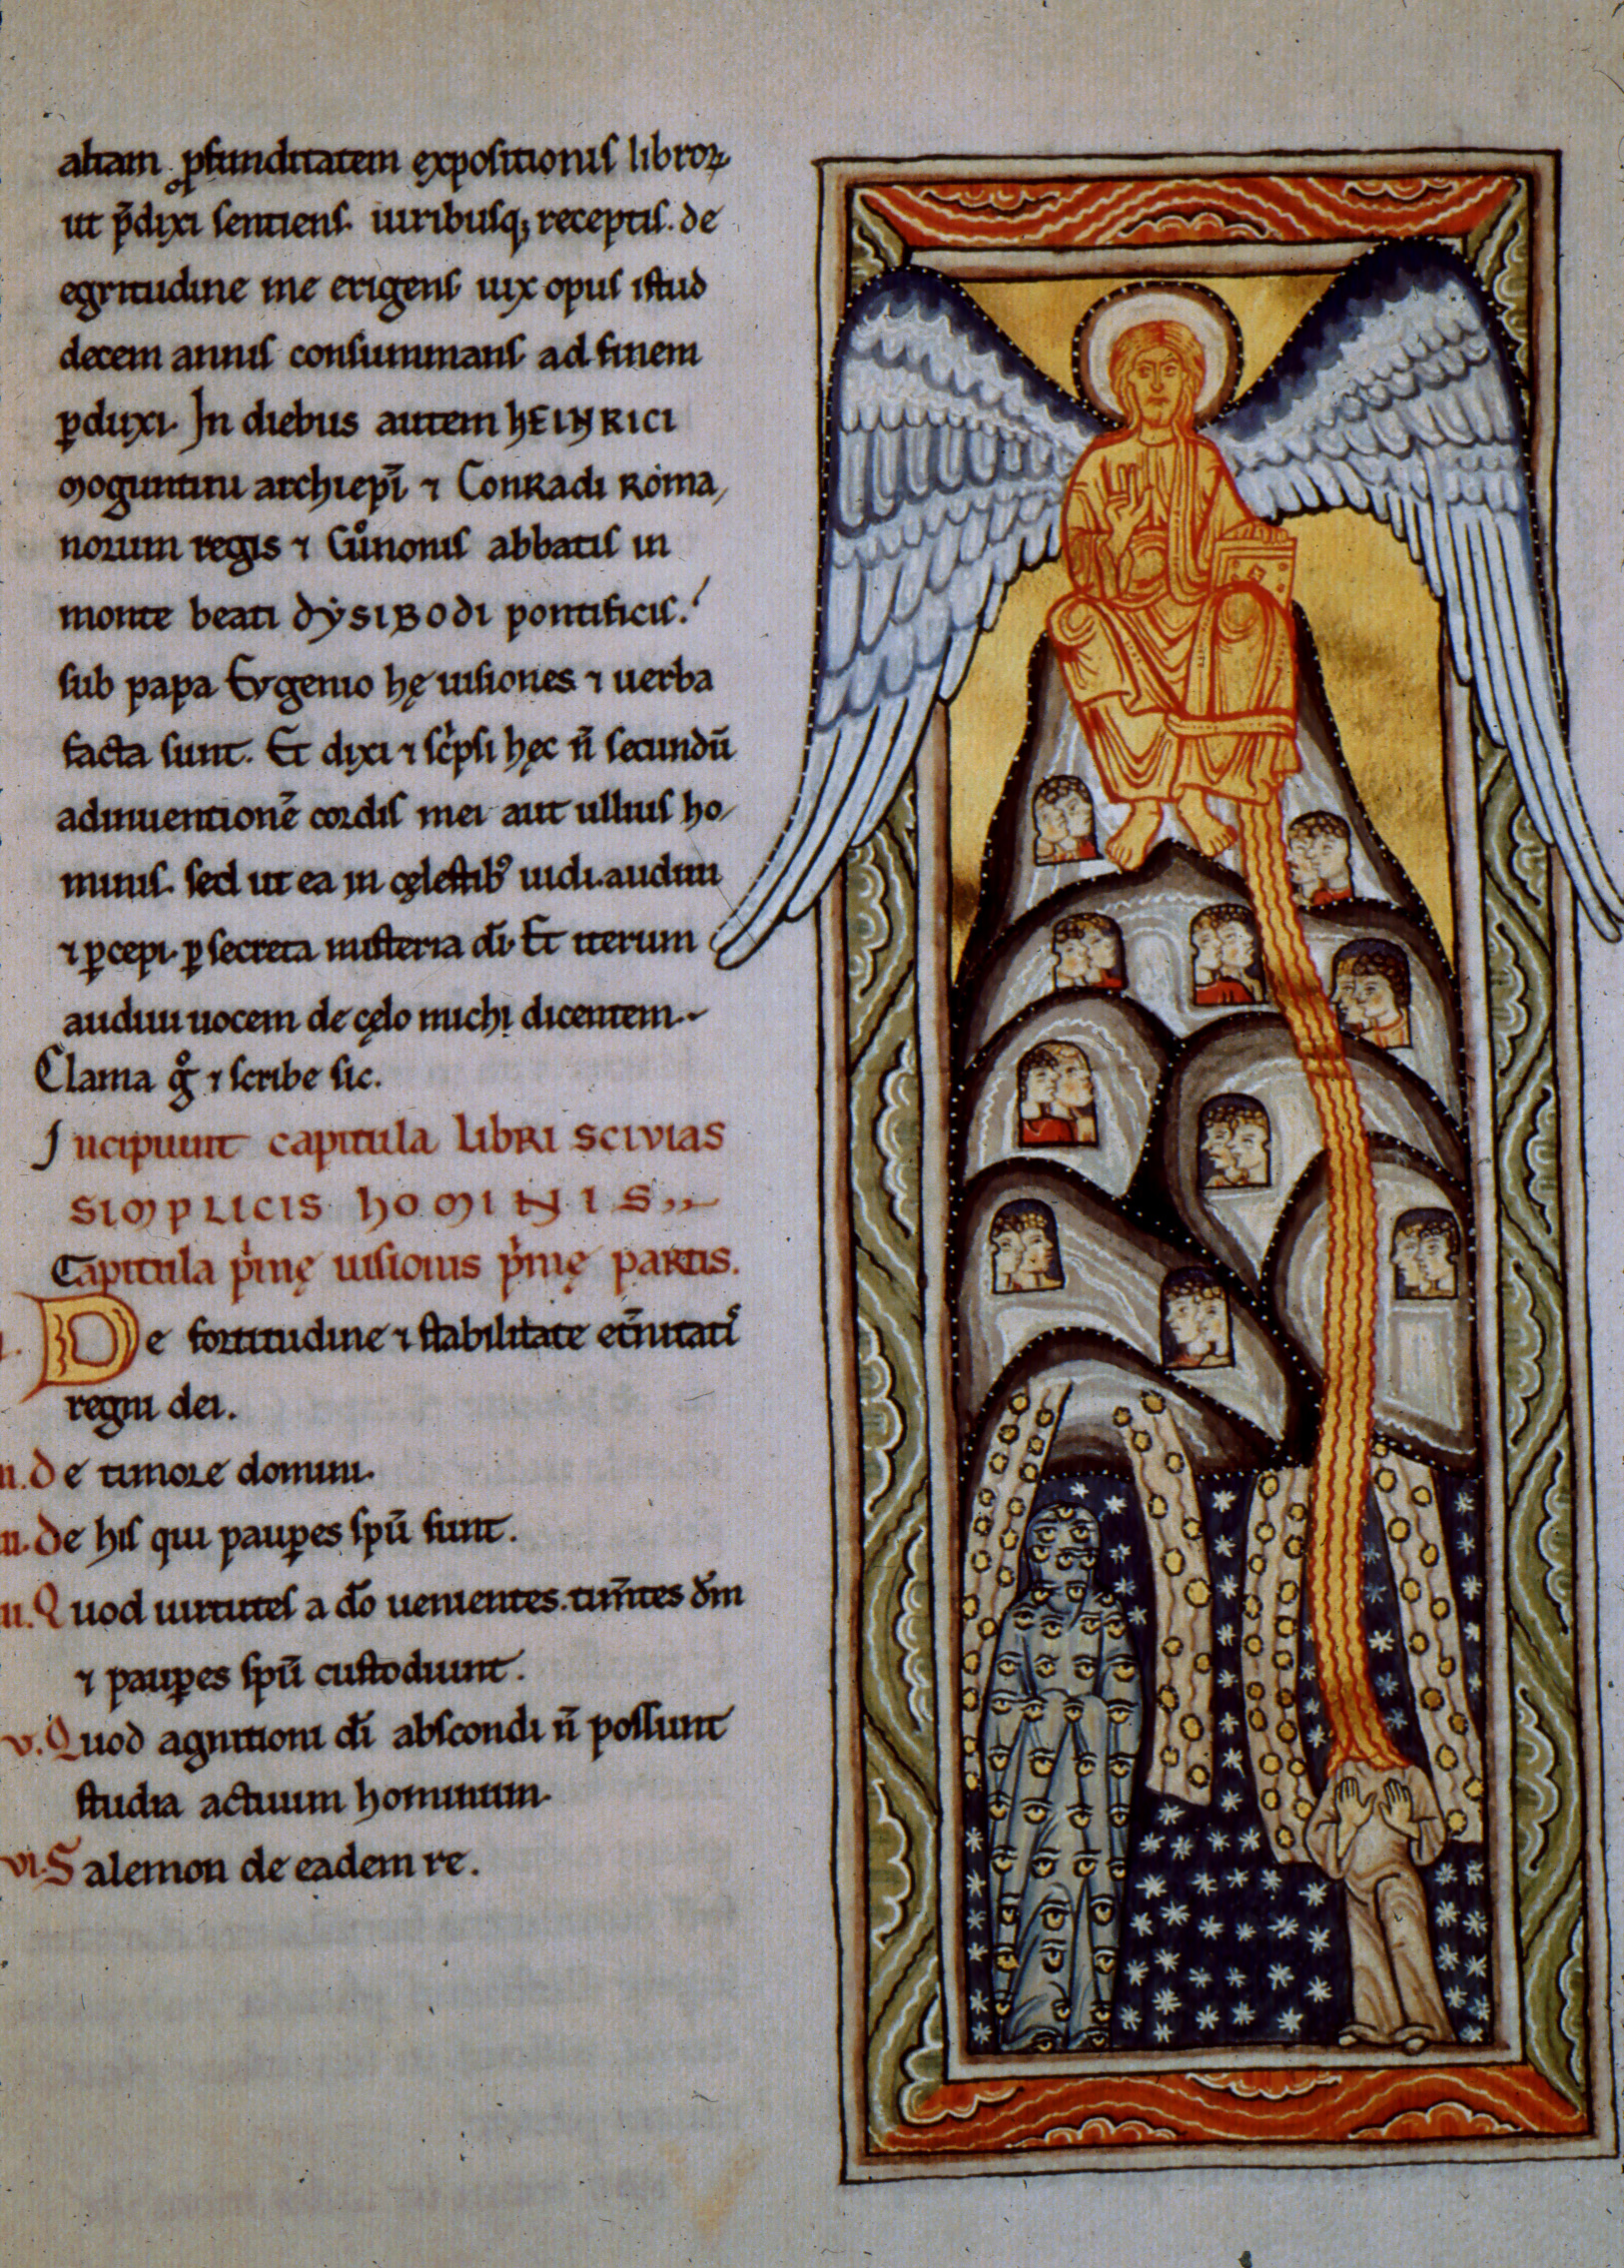 altam ꝓfunditatem expositionis libroꝝ
ut p̄dixi sentiens. uiribusq; receptis. de
egritudine me erigens uix opus istud
decem annis consummans ad finem
ꝑduxi. In diebus autem HEINRICI
Moguntini archiepi̅ ⁊ Conradi Roma,
norum regis ⁊ Cůnonis abbatis in
monte beati dẏsibodi pontificis.
sub papa Evgenio hę uisiones ⁊ uerba
facta sunt. Et dixi ⁊ sc͛psi hęc n̅ secundū
adinuentionē cordis mei aut ullius ho,
minis. sed ut ea in cęlestibꝰ uidi. audiui
⁊ ꝑcepi. ꝑ secreta misteria dī. Et iterum
audiui uocem de cęlo michi dicentem.
Clama gͦ ⁊ scribe sic.
Incipiunt capitula LIBRI SCIVIAS
SIMPLICIS HOMINIS
Capitula p͛mę uisionis p͛mę partis.
I. De fortitudine ⁊ stabilitate et̅nitatis
regni dei.
II. De timore domini.
III. De his qui pauꝑes spū sunt.
IIII. Quod uirtutes a dō uenientes. tim̅tes dm̅
⁊ pauꝑes spū custodiunt.
V. Quod agnitioni dī abscondi n̅ possunt
studia actuum hominum.
VI. Salemon de eadem re.